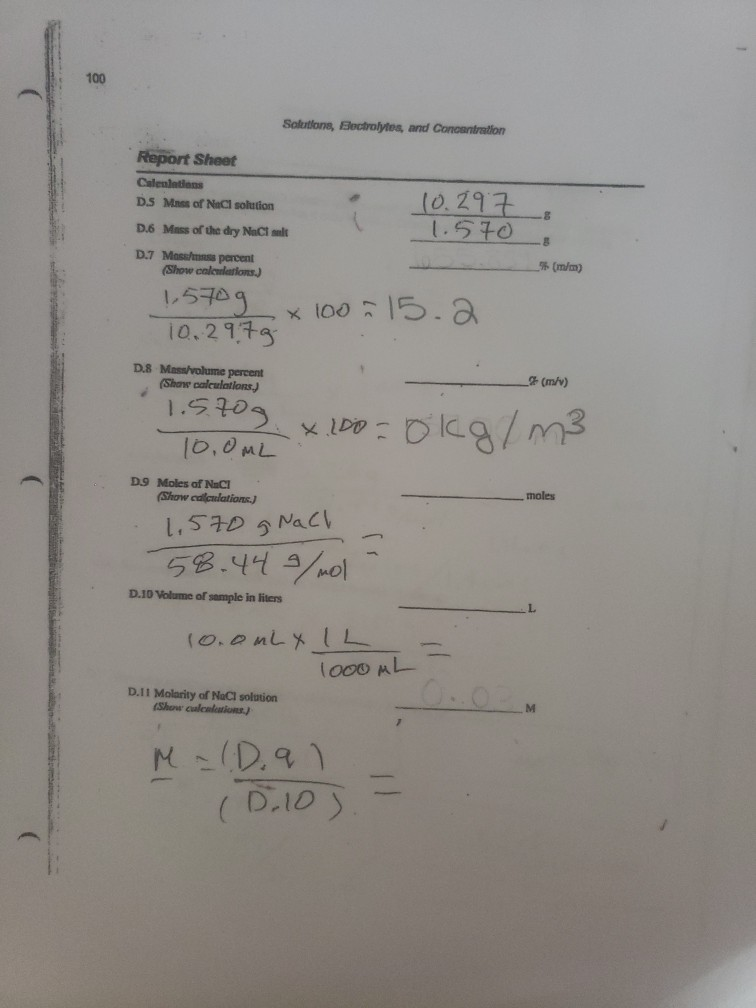 100
Solutions, Electrolytes, and Concentration
Report Sheet
Calculations
D.5 Mass of NaCl solution 10.297 g
D.6 Mass of the dry NaCl salt 1.570 g
D.7 Mass/mass percent % (m/m)
(Show calculations.)
1.570g
10.297g × 100 = 15.2
D.8 Mass/volume percent % (m/v)
(Show calculations.)
1.570g
10.0 mL × 100 = 0kg/m³
D.9 Moles of NaCl moles
(Show calculations.)
1.570 g NaCl
58.44 g/mol =
D.10 Volume of sample in liters L
10.0 mL × 1 L =
1000 mL
D.11 Molarity of NaCl solution 0.03 M
(Show calculations.)
M = (D.9) =
(D.10)